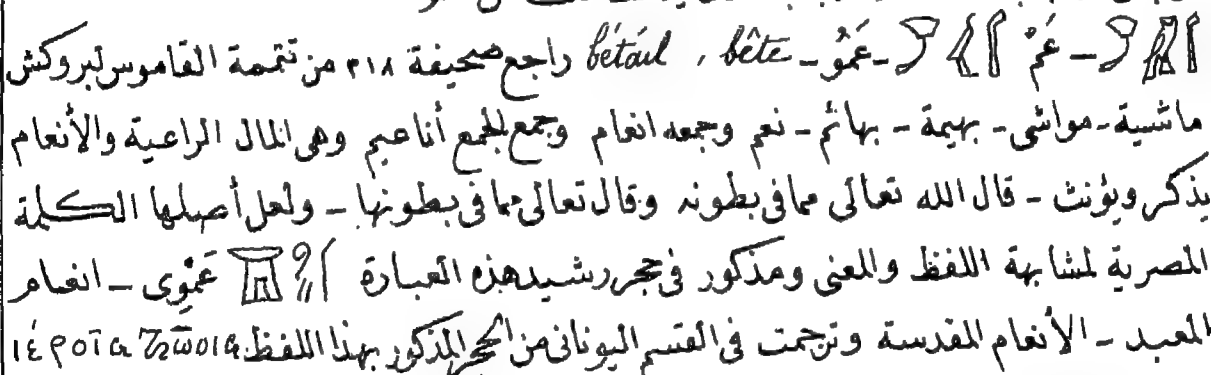 عَمْ - عَمُو - bétail, bête راجع صحيفة ٣١٨ من تتمة القاموس لبروكش
ماشية - مواشى - بهيمة - بهائم - نعم وجمعه انعام وجمع الجمع أناعيم وهى المال الراعية والأنعام
يذكر ويؤنث - قال الله تعالى مما فى بطونه وقال تعالى مما فى بطونها - ولعل أصلها الكلمة
المصرية لمشابهة اللفظ والمعنى ومذكور فى حجر رشيد هذه العبارة عَمْوِى - انعام
المعبد - الأنعام المقدسة وترجمت فى القسم اليونانى من الحجر المذكور بهذا اللفظ